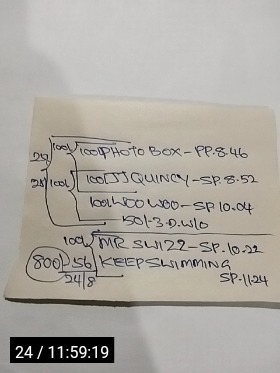 100/- PHOTO BOX - PP. 8.46
100/- JJ QUINCY - SP. 8.52
100/- WOO WOO - SP. 10.04
50/- 3.D. W/O
MR SWIZZ - SP. 10.22
KEEP SWIMMING
SP. 11.24
800/- 56
24/8
24 / 11:59:19